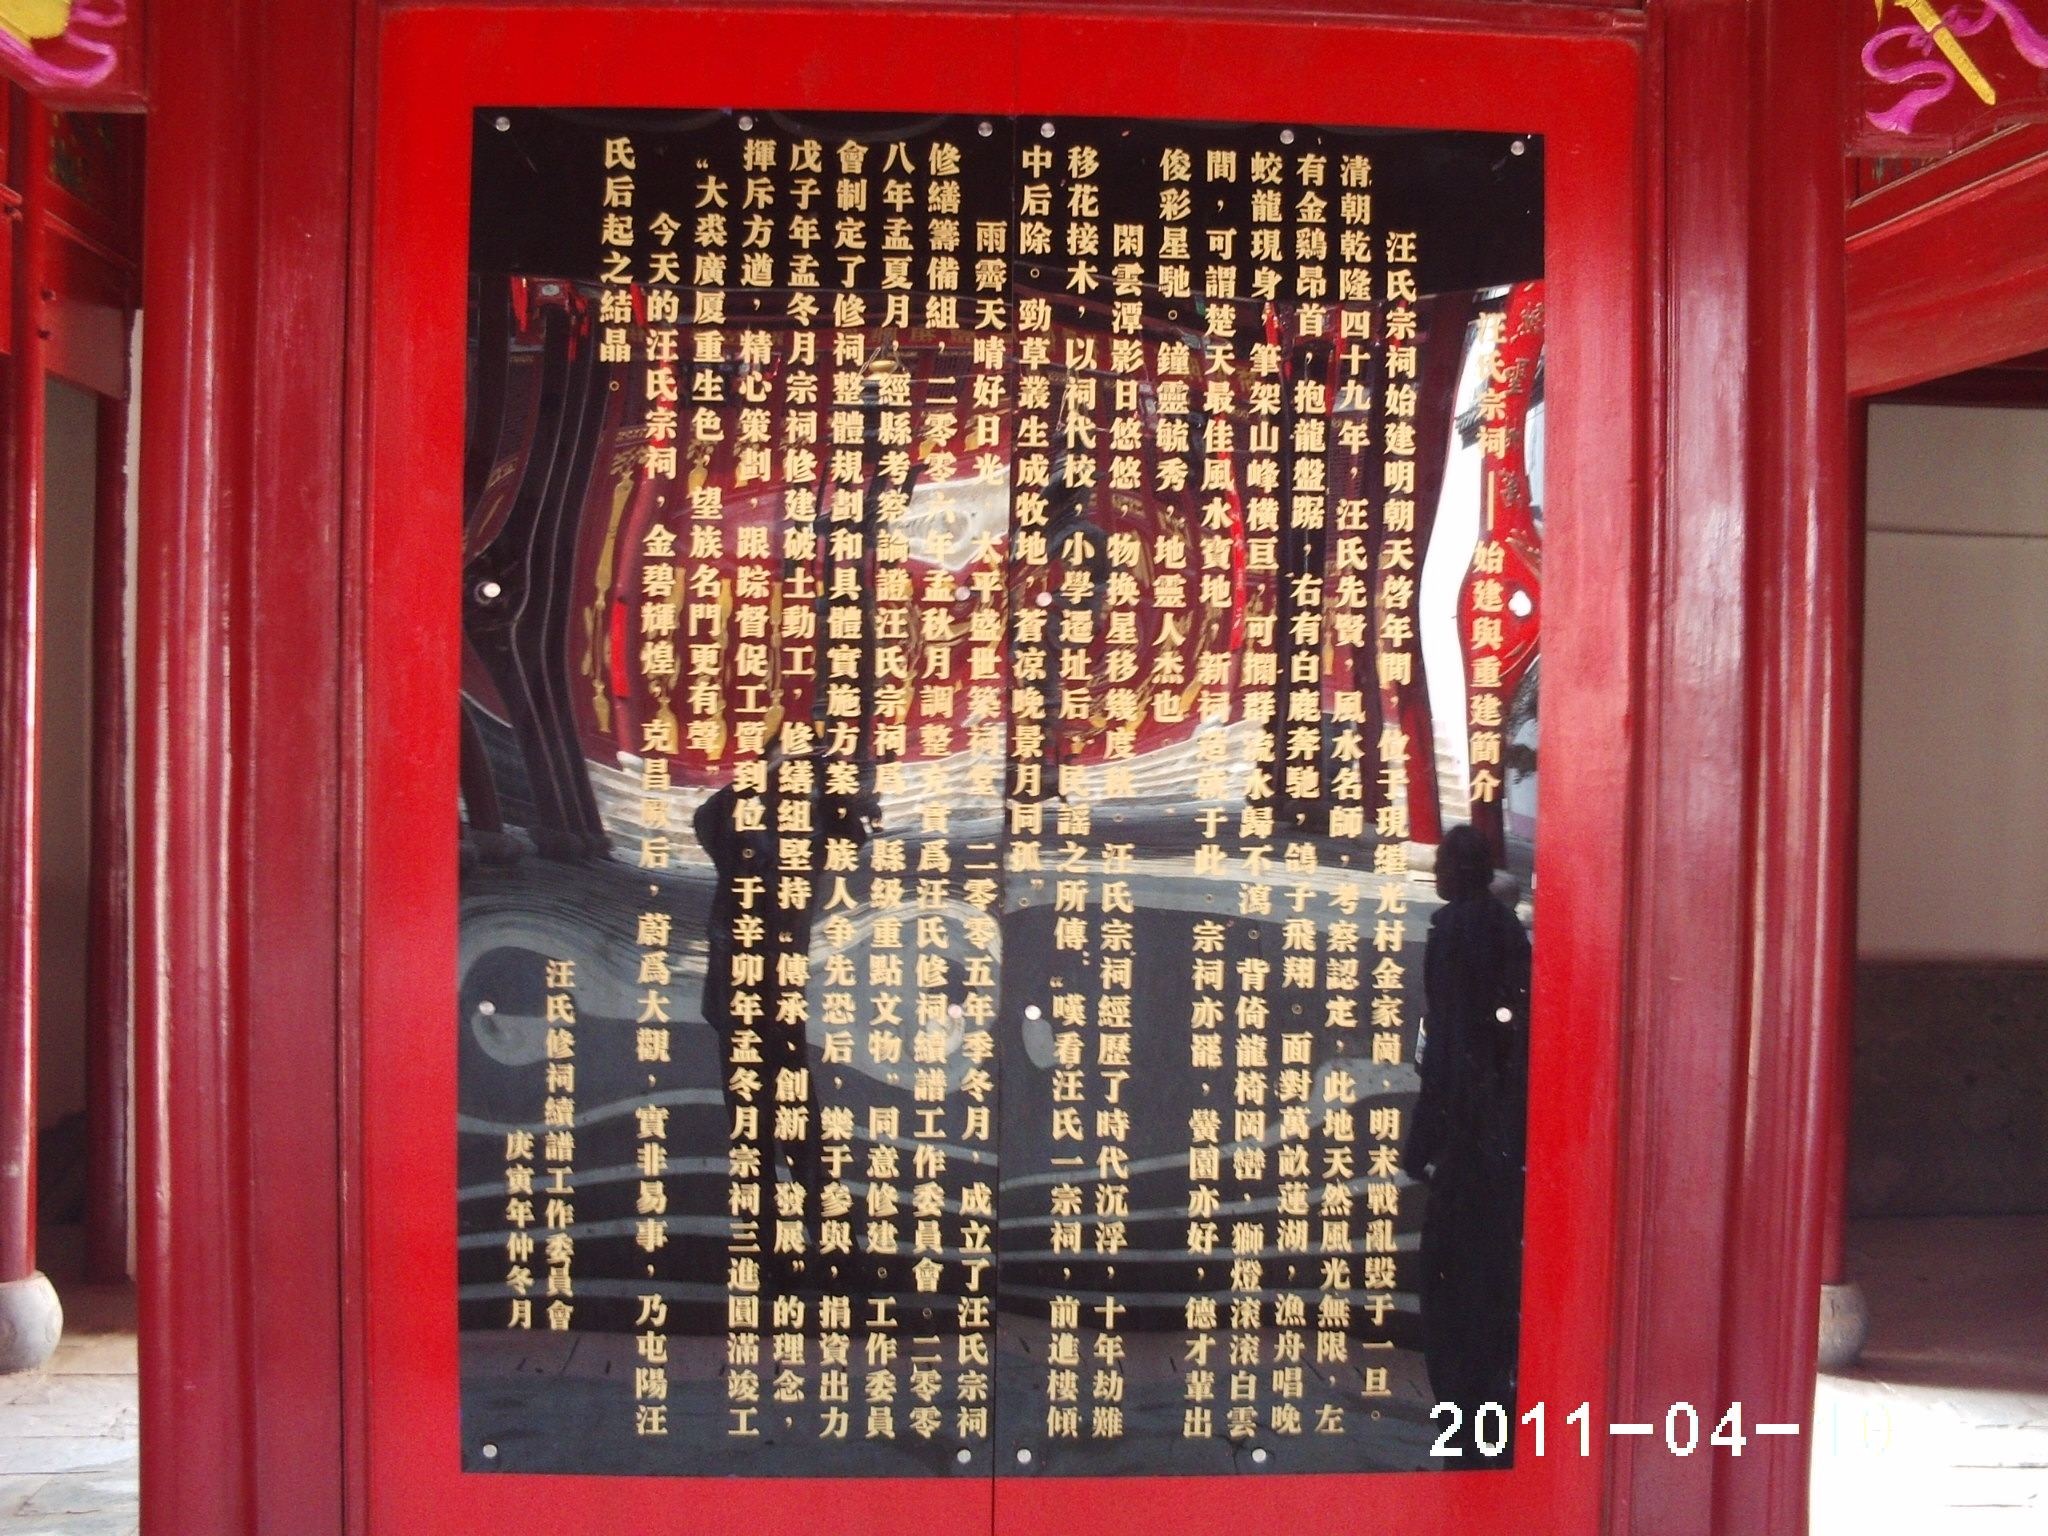 汪氏宗祠——始建與重建簡介
汪氏宗祠始建明朝天啓年間，位于現繼光村金家崗，明末戰亂毀于一旦。
清朝乾隆四十九年，汪氏先賢，風水名師，考察認定，此地天然風光無限，左
有金鷄昂首，抱龍盤踞，右有白鹿奔馳，鴿子飛翔。面對萬畝蓮湖，漁舟唱晚
蛟龍現身，筆架山峰橫亘，可攔群流水歸不瀉。背倚龍椅岡巒，獅燈滚滚白雲
間，可謂楚天最佳風水寶地，新祠于此。宗祠亦罷，黌園亦好，德才輩出
俊彩星馳。鐘靈毓秀，地靈人杰也
閑雲潭影日悠悠，物换星移幾度秋。汪氏宗祠經歷了時代沉浮，十年劫難
移花接木，以祠代校，小學遷址后，民謡之所傳：“嘆看汪氏一宗祠，前進樓傾
中后除。勁草叢生成牧地，蒼凉晚景月同孤”。
雨霽天晴好日光，太平盛世築祠堂。二零零五年季冬月，成立了汪氏宗祠
修繕籌備組，二零零六年孟秋月調整充實爲汪氏修祠續譜工作委員會。二零零
八年孟夏月，經縣考察論證汪氏宗祠爲“縣級重點文物”同意修建。工作委員
會制定了修祠整體規劃和具體實施方案，族人争先恐后，樂于參與，捐資出力
戊子年孟冬月宗祠修建破土動工，修繕組堅持“傳承、創新、發展”的理念，
揮斥方遒，精心策劃，跟踪督促工質到位。于辛卯年孟冬月宗祠三進圓滿竣工
“大裘廣厦重生色，望族名門更有聲”
今天的汪氏宗祠，金碧輝煌，克昌厥后，蔚爲大觀，實非易事，乃屯陽汪
氏后起之結晶。
汪氏修祠續譜工作委員會
庚寅年仲冬月
2011-04-10